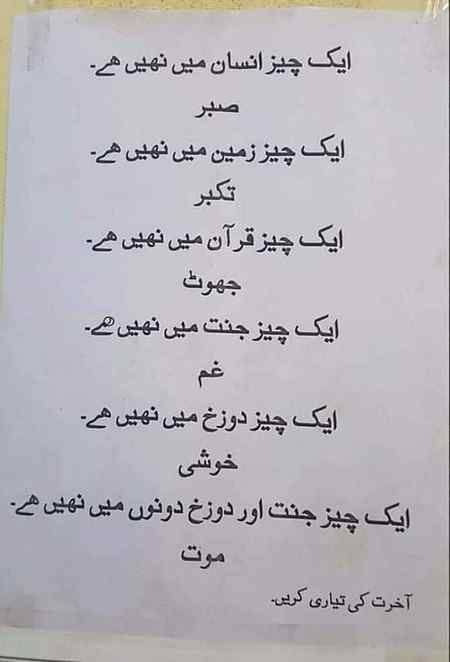 ایک چیز انسان میں نھیں ھے۔
صبر
ایک چیز زمین میں نھیں ھے۔
تکبر
ایک چیز قرآن میں نھیں ھے۔
جھوٹ
ایک چیز جنت میں نھیں ھے۔
غم
ایک چیز دوزخ میں نھیں ھے۔
خوشی
ایک چیز جنت اور دوزخ دونوں میں نھیں ھے۔
موت
آخرت کی تیاری کریں۔